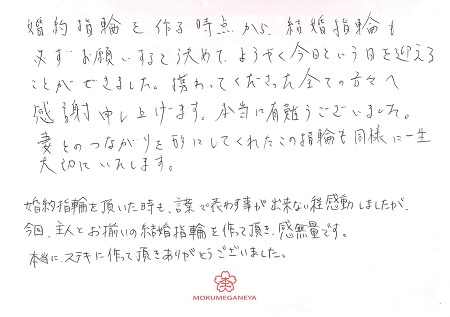 婚約指輪を作る時点から、結婚指輪も
必ずお願いすると決めて、ようやく今日という日を迎える
ことができました。携わってくださった全ての方々へ
感謝申し上げます。本当に有難うございました。
妻とのつながりを形にしてくれたこの指輪も同様に一生
大切にいたします。
婚約指輪を頂いた時も、言葉で表わす事が出来ない程感動しましたが、
今回、主人とお揃いの結婚指輪を作って頂き、感無量です。
本当に、ステキに作って頂きありがとうございました。
MOKUMEGANEYA